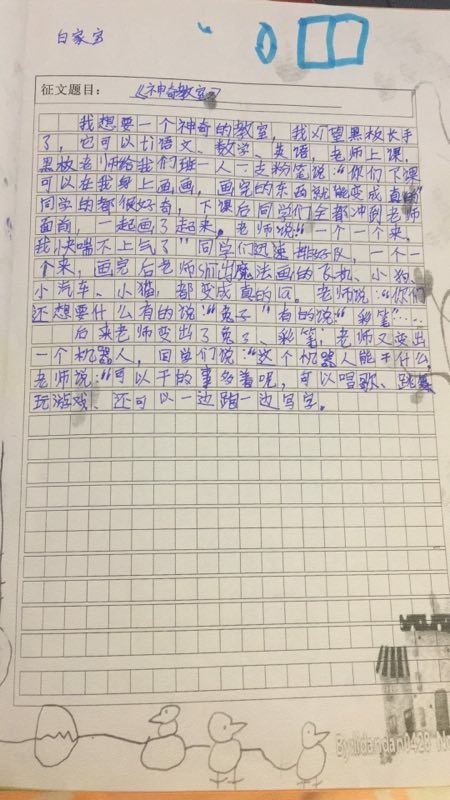 白家宝
征文题目：《神奇教室》
我想要一个神奇的教室，我希望黑板长手
了，它可以讲语文、数学、英语，老师上课，
黑板老师给我们班一人一支粉笔说：“你们下课
可以在我身上画画，画完的东西就能变成真的”
同学的都很好奇，下课后同学们全都冲到老师
面前，一起画了起来。老师说“一个一个来，
我快喘不上气了”同学们迅速排好队，一个一
个来，画完后老师 魔法画的飞机、小狗、
小汽车、小猫，都变成真的了。老师说：“你们
还想要什么有的说“兔子”有的说“彩笔”……
后来老师变出了兔子、彩笔，老师又变出
一个机器人，同学们说：“这个机器人能干什么，
老师说：“可以干的事多着呢，可以唱歌、跳
玩游戏、还可以一边跑一边写字。
By:lidandan0428